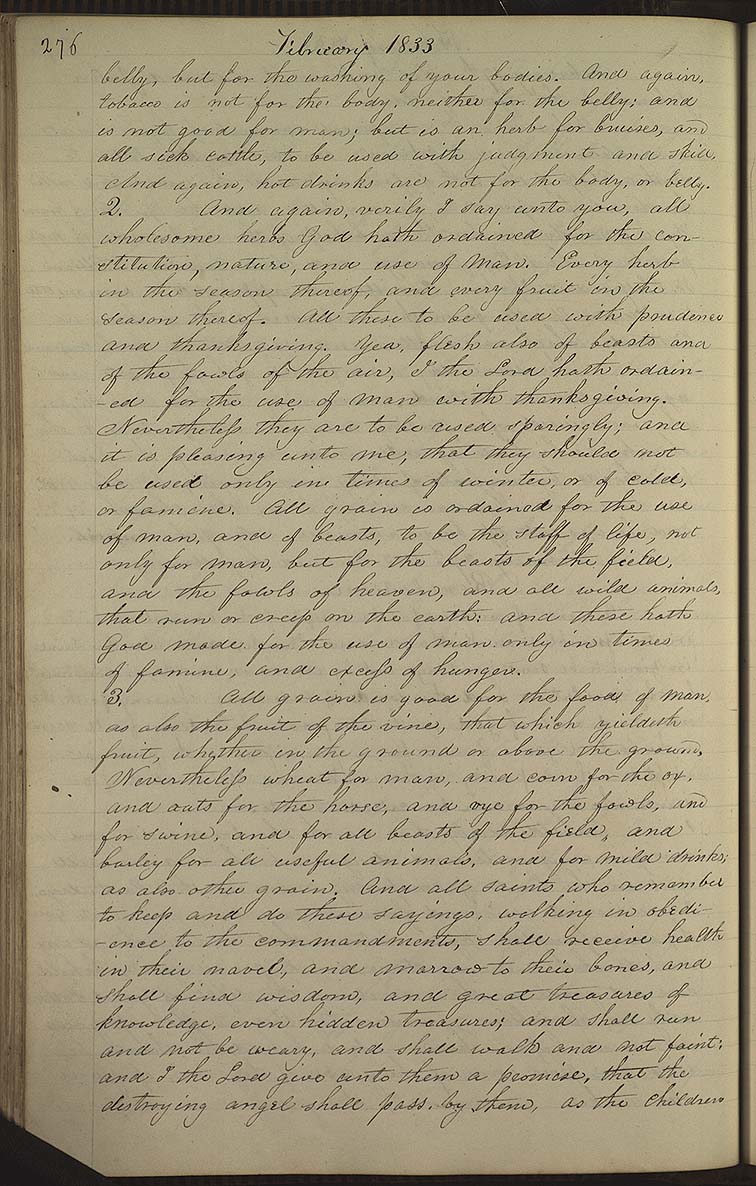 276
February 1833
belly, but for the washing of your bodies. And again,
tobacco is not for the body, neither for the belly; and
is not good for man; but is an herb for bruises, and
all sick cattle, to be used with judgment and skill,
And again, hot drinks are not for the body, or belly.
2. And again, verily I say unto you, all
wholesome herbs God hath ordained for the con-
stitution, nature, and use of man. Every herb
in the season thereof, and every fruit in the
season thereof. All these to be used with prudence
and thanksgiving. Yea, flesh also of beasts and
of the fowls of the air, I the Lord hath ordain-
-ed for the use of man with thanksgiving.
Nevertheless they are to be used sparingly; and
it is pleasing unto me, that they should not
be used only in times of winter, or of cold,
or famine. All grain is ordained for the use
of man, and of beasts, to be the staff of life, not
only for man, but for the beasts of the field,
and the fowls of heaven, and all wild animals,
that run or creep on the earth: and these hath
God made for the use of man only in times
of famine, and excess of hunger.
3. All grain is good for the food of man,
as also the fruit of the vine, that which yieldeth
fruit, whether in the ground or above the ground,
Nevertheless wheat for man, and corn for the ox,
and oats for the horse, and rye for the fowls, and
for swine, and for all beasts of the field, and
barley for all useful animals, and for mild drinks;
as also other grain. And all saints who remember
to keep and do these sayings, walking in obedi-
-ence to the commandments, shall receive health
in their navel, and marrow to their bones, and
shall find wisdom, and great treasures of
knowledge, even hidden treasures; and shall run
and not be weary, and shall walk and not faint:
and I the Lord give unto them a promise, that the
destroying angel shall pass by them, as the children